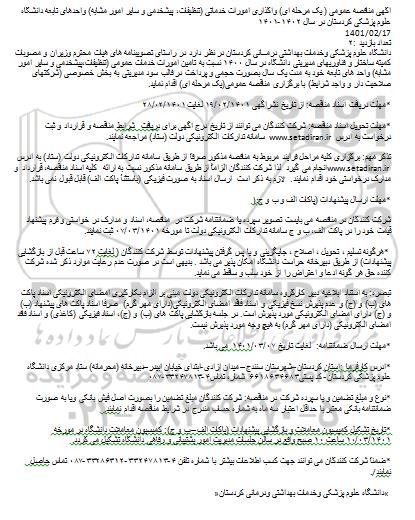 آگهی مناقصه عمومی ( یک مرحله ای) واگذاری امورات خدماتی (تنظیفات، پیشخدمی و سایر امور مشابه) واحدهای تابعه دانشگاه
علوم پزشکی کردستان در سال ۱۴۰۲-۱۴۰۱
1401/02/17
تعداد بازدید: ۲۰
دانشگاه علوم پزشکی وخدمات بهداشتی درمانی کردستان در نظر دارد در راستای تصویبنامه های هیات محترم وزیران و مصوبات
کمیته ساختار و فناوریهای مدیریتی دانشگاه در سال ۱۴۰۰ نسبت به تامین امورات خدمات عمومی (تنظیفات،پیشخدمی و سایر امور
مشابه) واحد های تابعه خود به مدت یک سال بصورت حجمی و پرداخت در قالب سود مدیریتی به بخش خصوصی (شرکتهای
صلاحیت دار و واجد شرایط) با برگزاری مناقصه عمومی(یک مرحله ای) اقدام نماید.
*مهلت دریافت اسناد مناقصه: از تاریخ نشر آگهی ۱۹/۰۲/۱۴۰۱ لغایت ۲۸/۰۲/۱۴۰۱
*مهلت تحویل اسناد مناقصه: شرکت کنندگان می توانند از تاریخ درج آگهی برای دریافت شرایط مناقصه و قرارداد و ثبت
درخواست به آدرس www.setadiran.ir سامانه تدارکات الکترونیکی دولت (ستاد) مراجعه نمایند.
تذکر مهم: برگزاری کلیه مراحل فرایند مربوط به مناقصه مذکور صرفا از طریق سامانه تدارکات الکترونیکی دولت (ستاد) به آدرس
www.setadiran.irانجام می گیرد لذا شرکت کنندگان الزاماً از طریق سامانه مذکور نسبت به ارائه کلیه اسناد مناقصه، قرارداد و
مدارک درخواستی خود اقدام نمایند. لازم به ذکر است ارسال اسناد به صورت فیزیکی (باستثنا پاکت الف) قابل قبول نمی باشد.
*مهلت ارسال پیشنهادات (پاکات الف و ب و ج):
شرکت کنندگان در مناقصه می بایست تصویر سپرده یا ضمانتنامه شرکت در مناقصه، اسناد و مدارک در خواستی و فرم پیشنهاد
قیمت خود را در پاکت الف، ب و ج سامانه تدارکات الکترونیکی دولت تا مورخه ۰۷/۰۳/۱۴۰۱ ثبت نمایند.
*هرگونه تسلیم ، تحویل ، اصلاح ، جایگزینی و یا پس گرفتن پیشنهادات توسط شرکت کنندگان ( لغایت ۷۲ ساعت قبل از بازگشایی
پیشنهادات) از طریق دبیرخانه حراست دانشگاه امکان پذیر می باشد . بدیهی است در صورت عدم رعایت موارد ذکر شده شرکت
کننده حق هر گونه ادعا و اعتراض را از خود سلب و ساقط می نماید.
تبصره: به استناد ابلاغیه دبیر کارگروه سامانه تدارکات الکترونیکی دولت مبنی بر الزام بکارگیری امضای الکترونیکی اسناد پاکت
های (ب) و (ج) و عدم پذیرش نسخ فیزیکی و اسناد فاقد امضای الکترونیکی(دارای مهر گرم) صرفا اسناد پاکت های پیشنهاد (ب)
و (ج) دارای امضای الکترونیکی مورد پذیرش است. در جلسه بازگشایی پاکت های (ب) و (ج)، اسناد فیزیکی (کاغذی) و اسناد فاقد
امضای الکترونیکی (دارای مهر گرم) به هیچ وجه مورد پذیرش نیست.
*مهلت ارسال ضمانتنامه: لغایت تاریخ ۱۴۰۱/۰۳/۰۷ می باشد.
*آدرس کارفرما: استان کردستان-شهرستان سنندج-میدان آزادی-ابتدای خیابان آبیدر-دبیرخانه (محرمانه) ستاد مرکزی دانشگاه
علوم پزشکی کردستان - کدپستی ۶۶۱۸۶۳۴۶۸۳ شماره تماس۴-۰۸۷-۳۳۲۴۷۸۱۳
*نوع و مبلغ تضمین و یا سپرده شرکت در مناقصه: شرکت کنندگان مبلغ تضمین را بصورت اصل فیش بانکی ویا به صورت
ضمانتنامه بانکی معتبر با حداقل اعتبار سه ماه به شماره حساب مندرج در شرایط مناقصه اقدام نمایند.
*تاریخ تشکیل کمیسیون معاملات و بازگشایی پیشنهادات (پاکات الف–ب و ج): کمیسیون معاملات دانشگاه در مورخه
۱۰/۰۳/۱۴۰۱ ساعت ۱۰ صبح واقع در سالن جلسات مدیریت امور پشتیبانی و رفاهی دانشگاه تشکیل می گردد.
*ضمنا شرکت کنندگان می توانند جهت کسب اطلاعات بیشتر با شماره تلفن ۴-۳۳۲۴۷۸۱۳-۰۸۷-۳۳۲۸۶۳۱۲ تماس حاصل
نمایند/.
«دانشگاه علوم پزشکی وخدمات بهداشتی ودرمانی کردستان»